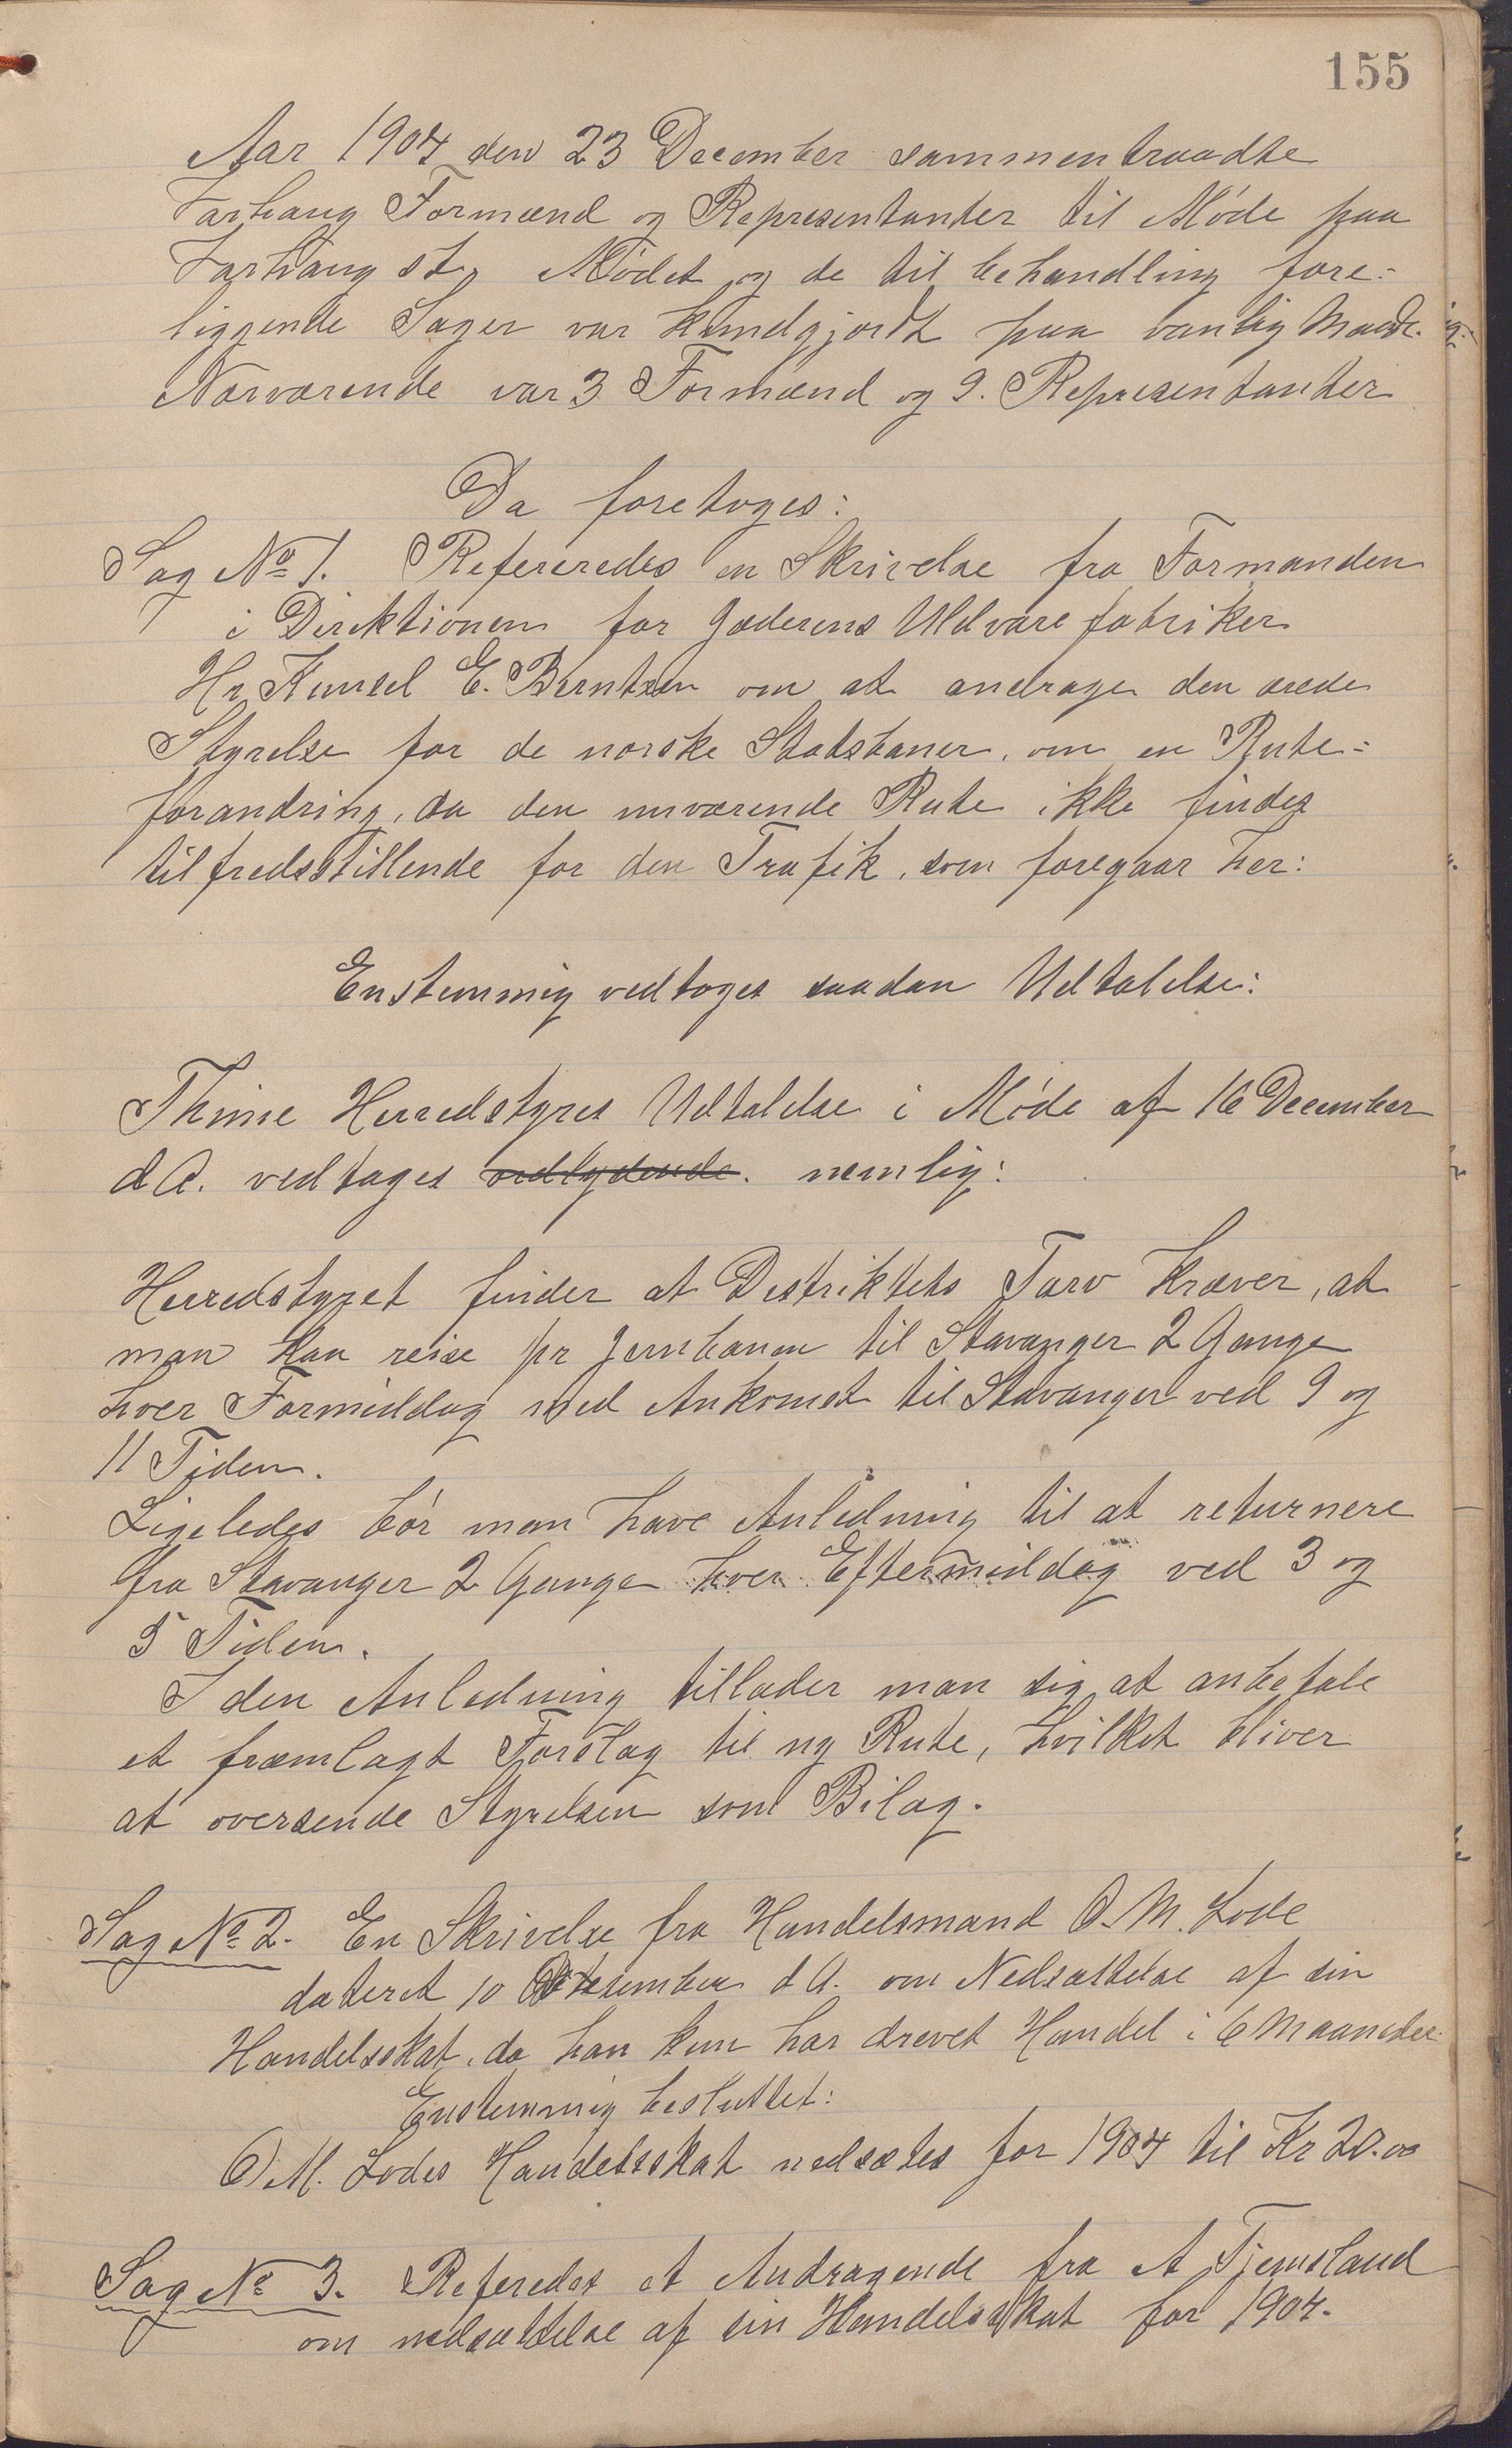 155
Aar 1904 den 23 December sammentraadte
Varhaug Formænd og Representanter til Møde paa
Varhaug st. Mødet og de til behandling fore-
liggende Sager var kundgjordt paa vanlig Maade.
Nærværende var 3 Formænd og 9. Representanter
Da foretoges:
Sag No 1. Refereredes en Skrivelse fra Formanden
i Direktionen for Jæderens Uldvarefabriker
Hr. Konsul E. Berntsen om at andrage den ærede
Styrelse for de norske Statsbaner, om en Rute-
forandring, da den nuværende Rute ikke findes
tilfredsstillende for den Trafik, som foregaar her:
Enstemmig vedtoges saadan Udtalelse:
Thime Herredstyres Udtalelse i Møde af 16 December
d A. vedtages ordlydende. nemlig:
Herredstyret finder at Distriktets Tarv kræver, at
man kan reise pr Jernbanen til Stavanger 2 Gange
hver Formiddag med Ankomst til Stavanger ved 9 og
11 Tiden.
Ligeledes bør man have Anledning til at returnere
fra Stavanger 2 Gange hver Eftermiddag ved 3 og
5 Tiden.
I den Anledning tillader man sig at anbefale
et fræmlagt Forslag til ny Rute, hvilket bliver
at oversende Styrelsen som Bilag.
Sag No 2. En Skrivelse fra Handelsmand O. M. Lode
dateret 10 December d A. om Nedsættelse af sin
Handelsskat, da han kun har drevet Handel i 6 Maaneder
Enstemmig besluttet:
O M. Lodes Handelsskat nedsættes for 1904 til Kr 20.00
Sag No 3. Referedes et Andragende fra A Tjemsland
om nedsættelse af sin Handelsskat for 1904.